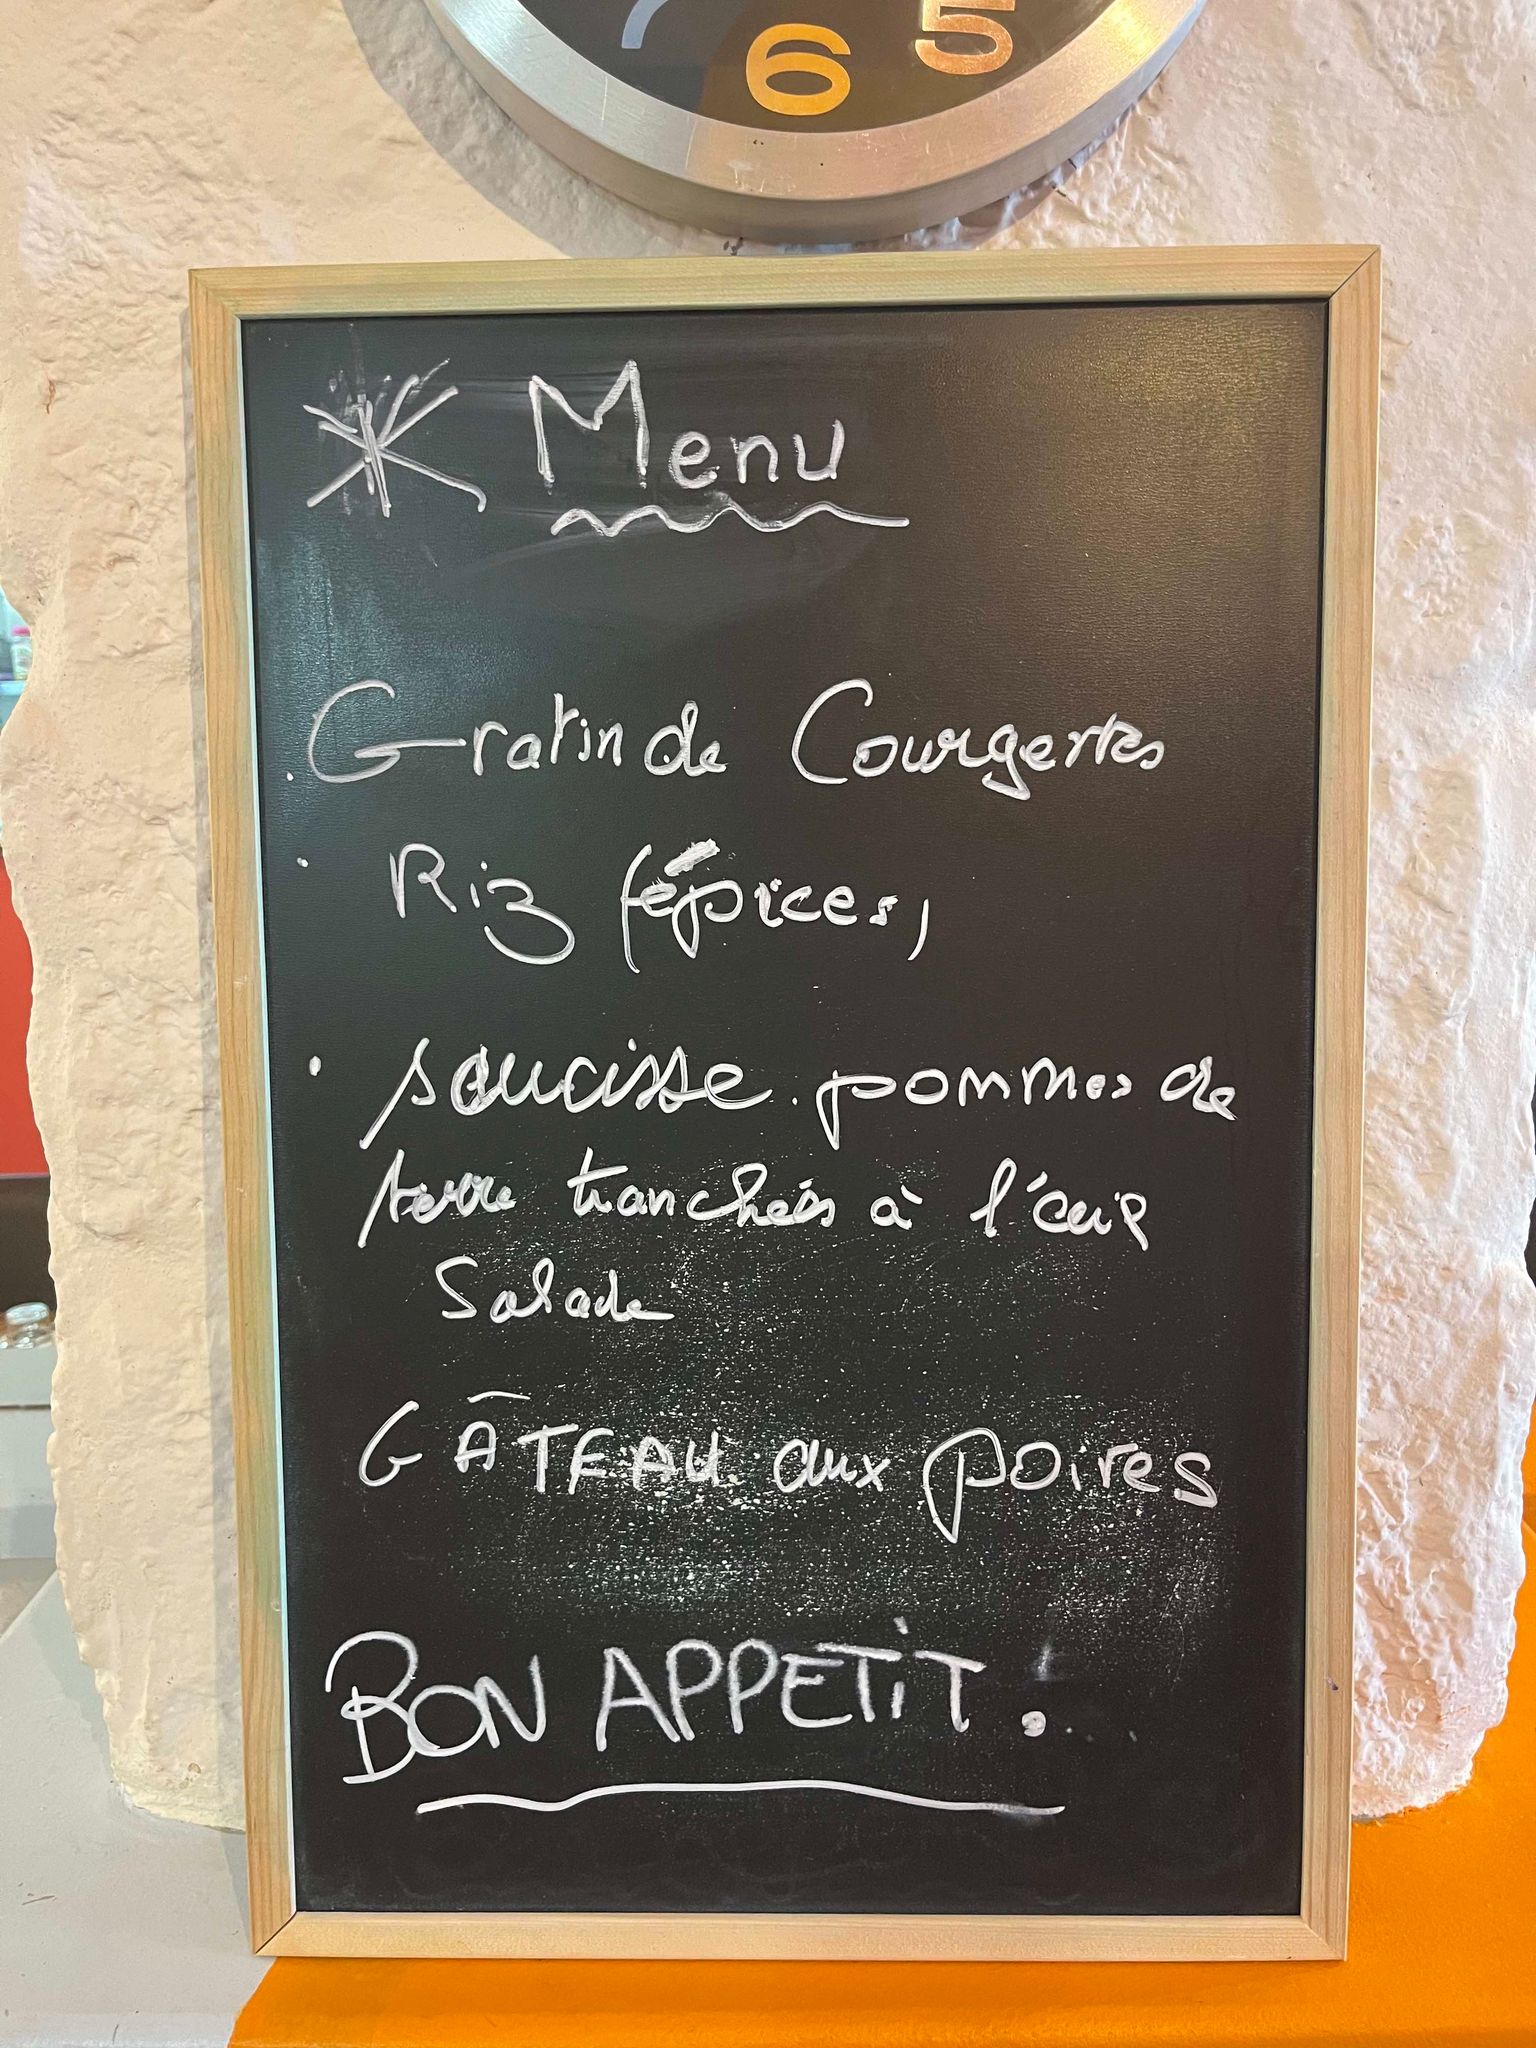 6 5
Menu
. Gratin de Courgettes
. Riz (épices)
. saucisse. pommes de
terre tranchées à l'ail
Salade
GÂTEAU aux poires
BON APPETIT!